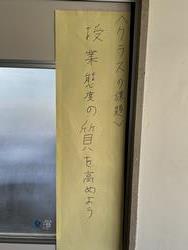 〈クラスの課題〉
授業態度の質を高めよう